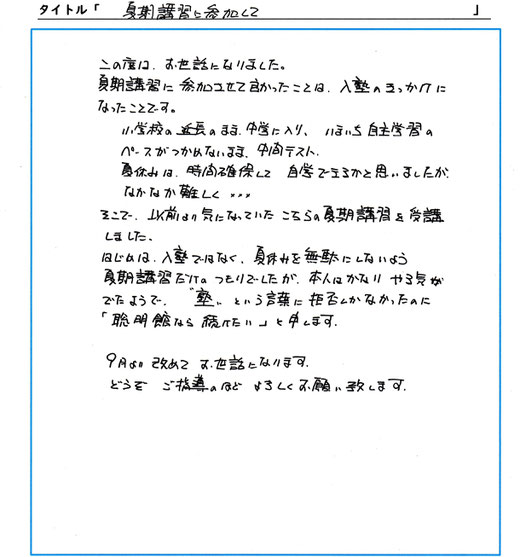 タイトル「 夏期講習に参加して 」
この度は、お世話になりました。
夏期講習に参加させて良かったことは、入塾のきっかけに
なったことです。
小学校の延長のまま、中学に入り、いまいち自主学習の
ペースがつかめないまま、中間テスト、
夏休みは、時間確保して 自学できるかと思いましたが、
なかなか難しく・・・
そこで、以前より気になっていた こちらの夏期講習を受講
しました。
はじめは、入塾ではなく、夏休みを無駄にしないよう
夏期講習だけのつもりでしたが、本人はかなり やる気が
でたようで、〝塾〟という言葉に拒否しかなかったのに
「聡明館なら続けたい」と申します。
9月より改めて お世話になります。
どうぞ ご指導のほど よろしくお願い致します。